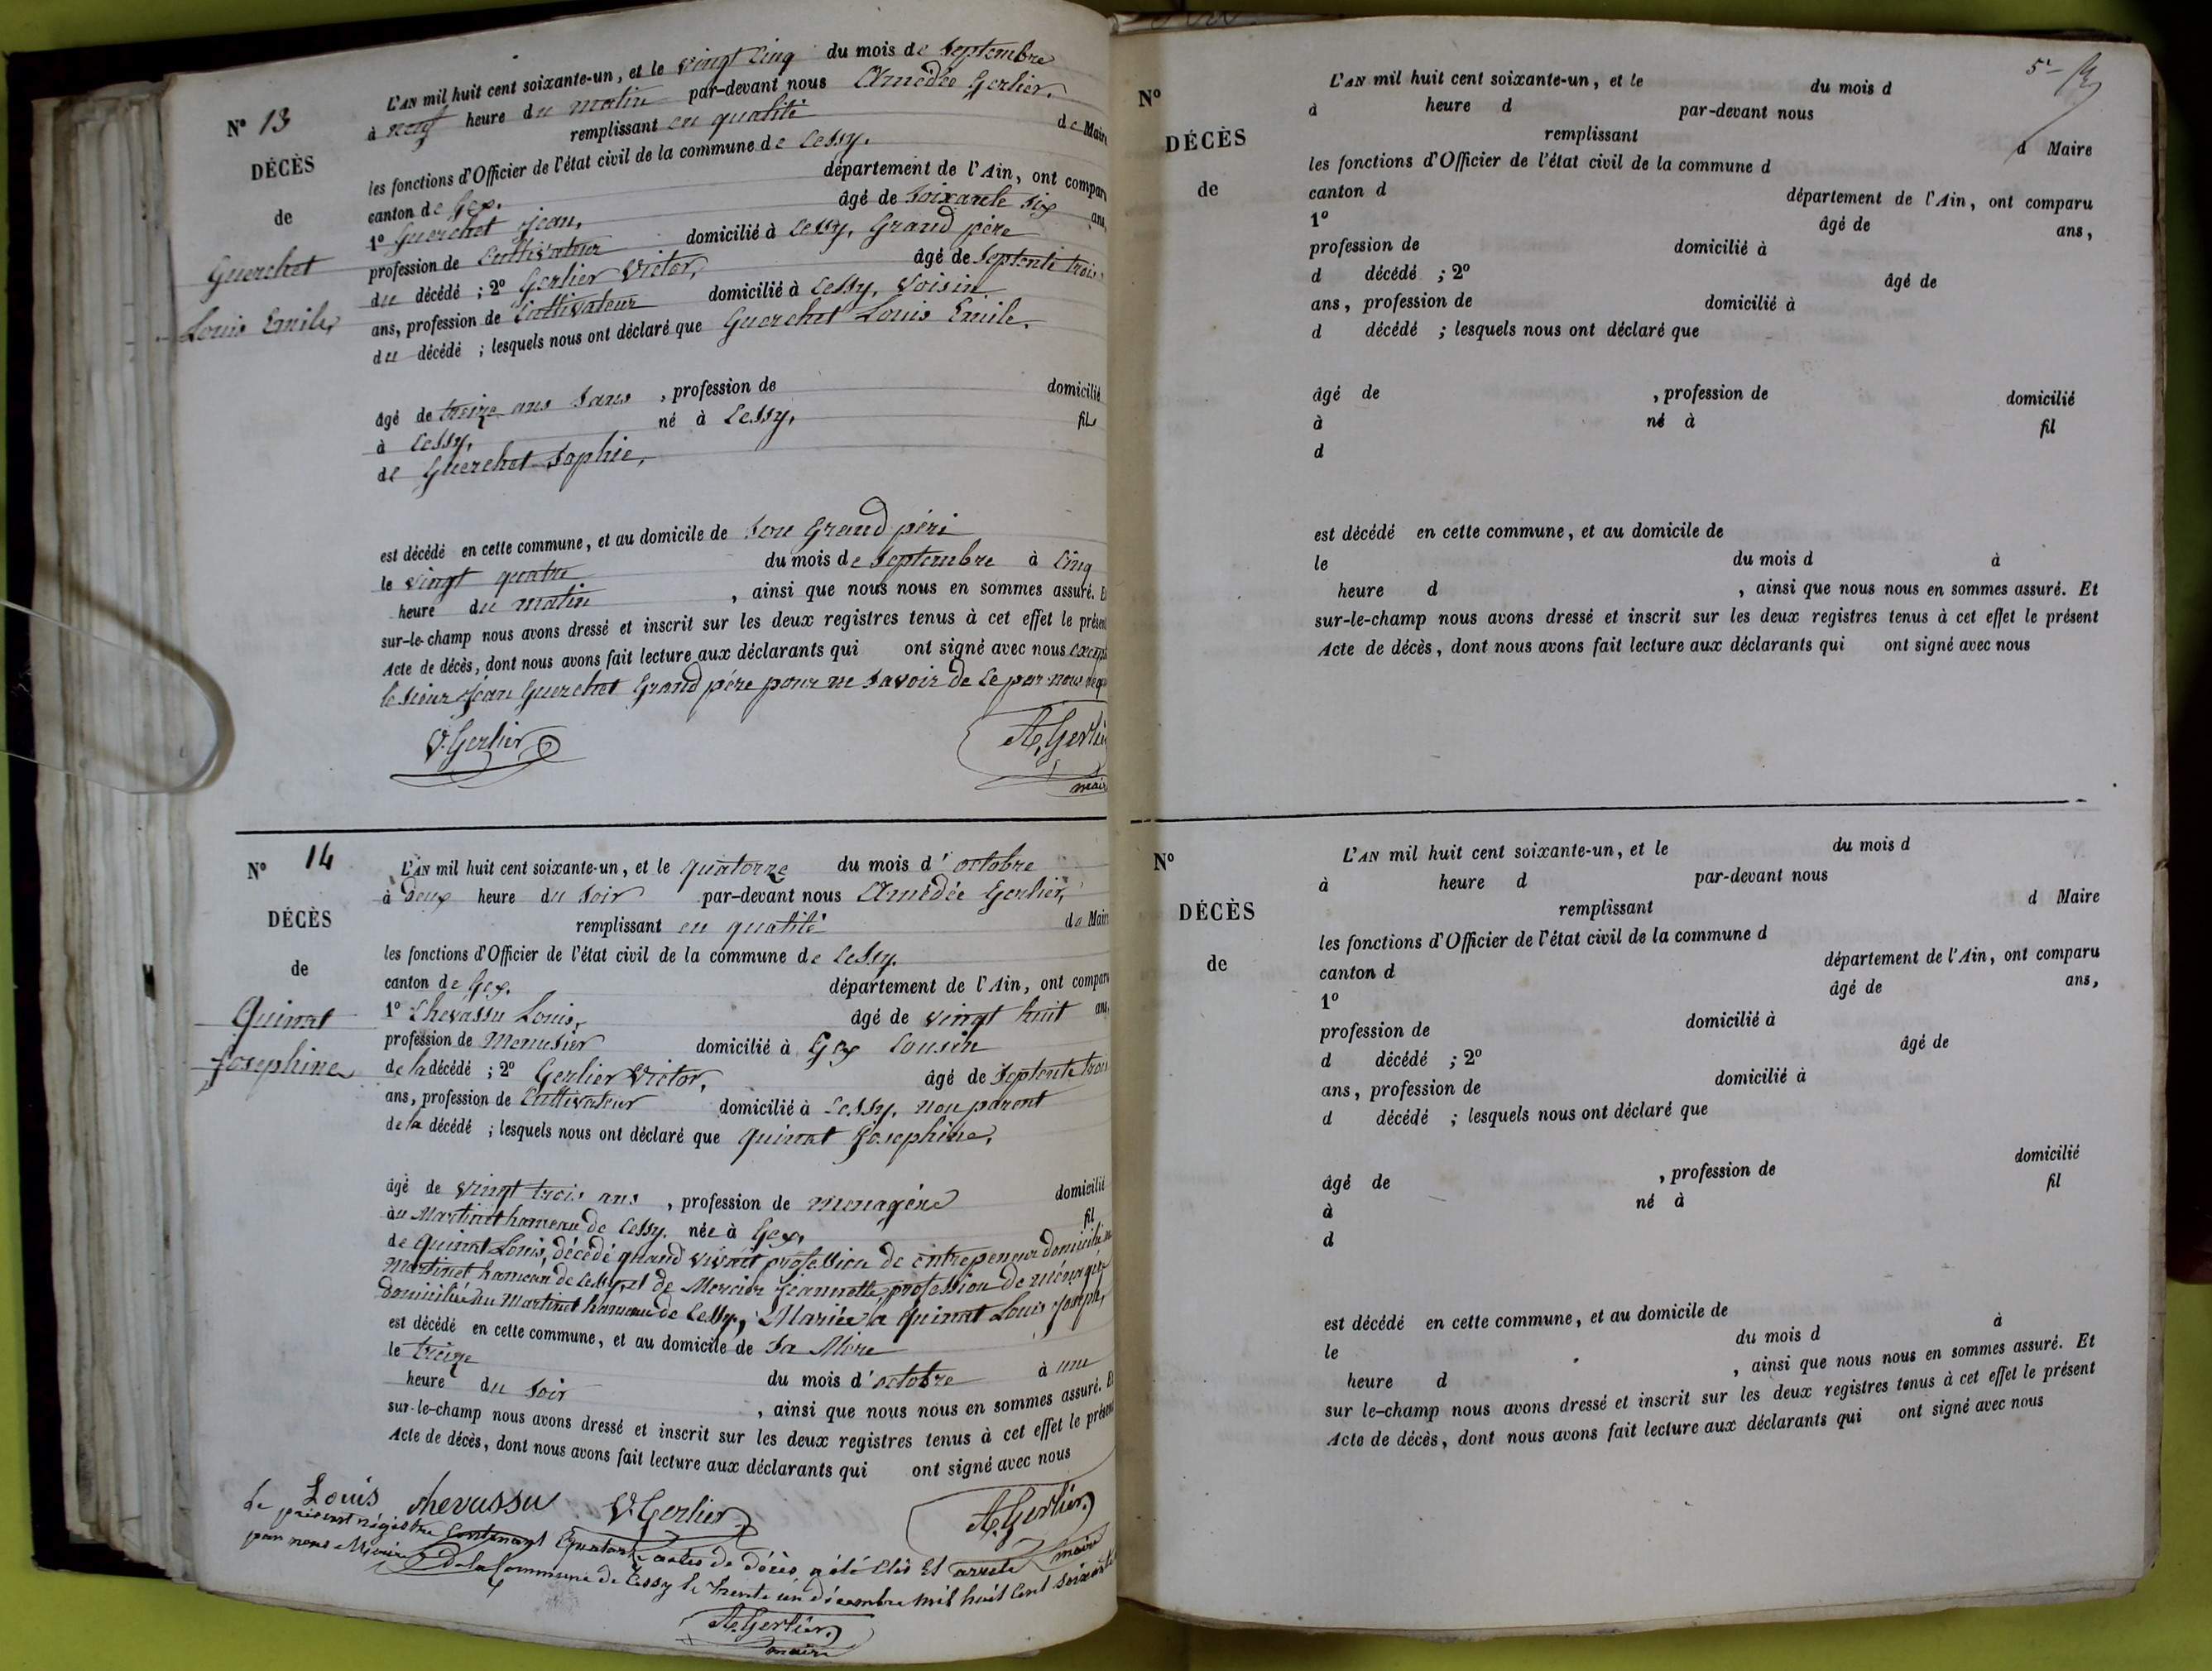 N° 13
DÉCÈS
de
Guerchet
Louis Emile,
L'AN mil huit cent soixante-un, et le vingt cinq du mois de Septembre
à neuf heure du matin par-devant nous Amédée Gerlier,
remplissant en qualité de Maire
les fonctions d'Officier de l'état civil de la commune de Cessy.
canton de Gex. département de l'Ain, ont comparu
1° Guerchet Jean, âgé de Soixante six ans,
profession de Cultivateur domicilié à Cessy, Grand père
du décédé ; 2° Gerlier Victor, âgé de Septente trois
ans, profession de Cultivateur domicilié à Cessy, Voisin
du décédé ; lesquels nous ont déclaré que Guerchet Louis Emile.
âgé de treize ans Sans , profession de domicilié
à Cessy, né à Cessy, fils
de Guerchet Sophie,
est décédé en cette commune, et au domicile de Son Grand péri
le vingt quatre du mois de Septembre à Cinq
heure du matin , ainsi que nous nous en sommes assuré. E
sur-le-champ nous avons dressé et inscrit sur les deux registres tenus à cet effet le présen
Acte de décès, dont nous avons fait lecture aux déclarants qui ont signé avec nous except
le Sieur Jean Guerchet Grand père pour ne Savoir de Ce par nous
V. Gerlier
A. Gerli
mair
N° 14
DÉCÈS
de
Quinat
Josephine
L'AN mil huit cent soixante-un, et le quatorze du mois d'octobre
à Deux heure du Soir par-devant nous Amédée Gerlier,
remplissant en qualité de Mair
les fonctions d'Officier de l'état civil de la commune de Cessy.
canton de Gex. département de l'Ain, ont compar
1° Chevassu Louis, âgé de vingt huit ans
profession de Menusier domicilié à Gex Cousin
de la décédé ; 2° Gerlier Victor, âgé de Septente trois
ans, profession de Cultivateur domicilié à Cessy, non parent
de la décédé ; lesquels nous ont déclaré que Quinat Josephine,
âgé de vingt trois ans , profession de menagére domicilié
au Martinet hameau de Cessy. née à Gex, fil
de Quinat Louis, décédé quand vivait profession de entrepeneur domicilié au
Martinet hameau de Cessy, et de Mercier Jeannette, profession de ménagér
Domiciliée au Martinet hameau de Cessy, Mariée à Quinat Louis Joseph,
est décédé en cette commune, et au domicile de Sa Mère
le treize du mois d'octobre à une
heure du Soir , ainsi que nous nous en sommes assuré. E
sur-le-champ nous avons dressé et inscrit sur les deux registres tenus à cet effet le présen
Acte de décès, dont nous avons fait lecture aux déclarants qui ont signé avec nous
Louis chevassu V. Gerlier A. Gerlier
maire
Le présent régistre Contenant Quatorze actes de décès, a été Clos Et arreté
par nous Maire de la Commune de Cessy le trente un décembre mil huit Cent Soixante
A. Gerlier
maire
5e
N°
DÉCÈS
de
L'AN mil huit cent soixante-un, et le du mois d
à heure d par-devant nous
remplissant d Maire
les fonctions d'Officier de l'état civil de la commune d
canton d département de l'Ain, ont comparu
1° âgé de ans,
profession de domicilié à
d décédé ; 2° âgé de
ans, profession de domicilié à
d décédé ; lesquels nous ont déclaré que
âgé de , profession de domicilié
à né à fil
d
est décédé en cette commune, et au domicile de
le du mois d à
heure d , ainsi que nous nous en sommes assuré. Et
sur-le-champ nous avons dressé et inscrit sur les deux registres tenus à cet effet le présent
Acte de décès, dont nous avons fait lecture aux déclarants qui ont signé avec nous
N°
DÉCÈS
de
L'AN mil huit cent soixante-un, et le du mois d
à heure d par-devant nous
remplissant d Maire
les fonctions d'Officier de l'état civil de la commune d
canton d département de l'Ain, ont comparu
1° âgé de ans,
profession de domicilié à
d décédé ; 2° âgé de
ans, profession de domicilié à
d décédé ; lesquels nous ont déclaré que
âgé de , profession de domicilié
à né à fil
d
est décédé en cette commune, et au domicile de
le du mois d à
heure d , ainsi que nous nous en sommes assuré. Et
sur le-champ nous avons dressé et inscrit sur les deux registres tenus à cet effet le présent
Acte de décès, dont nous avons fait lecture aux déclarants qui ont signé avec nous